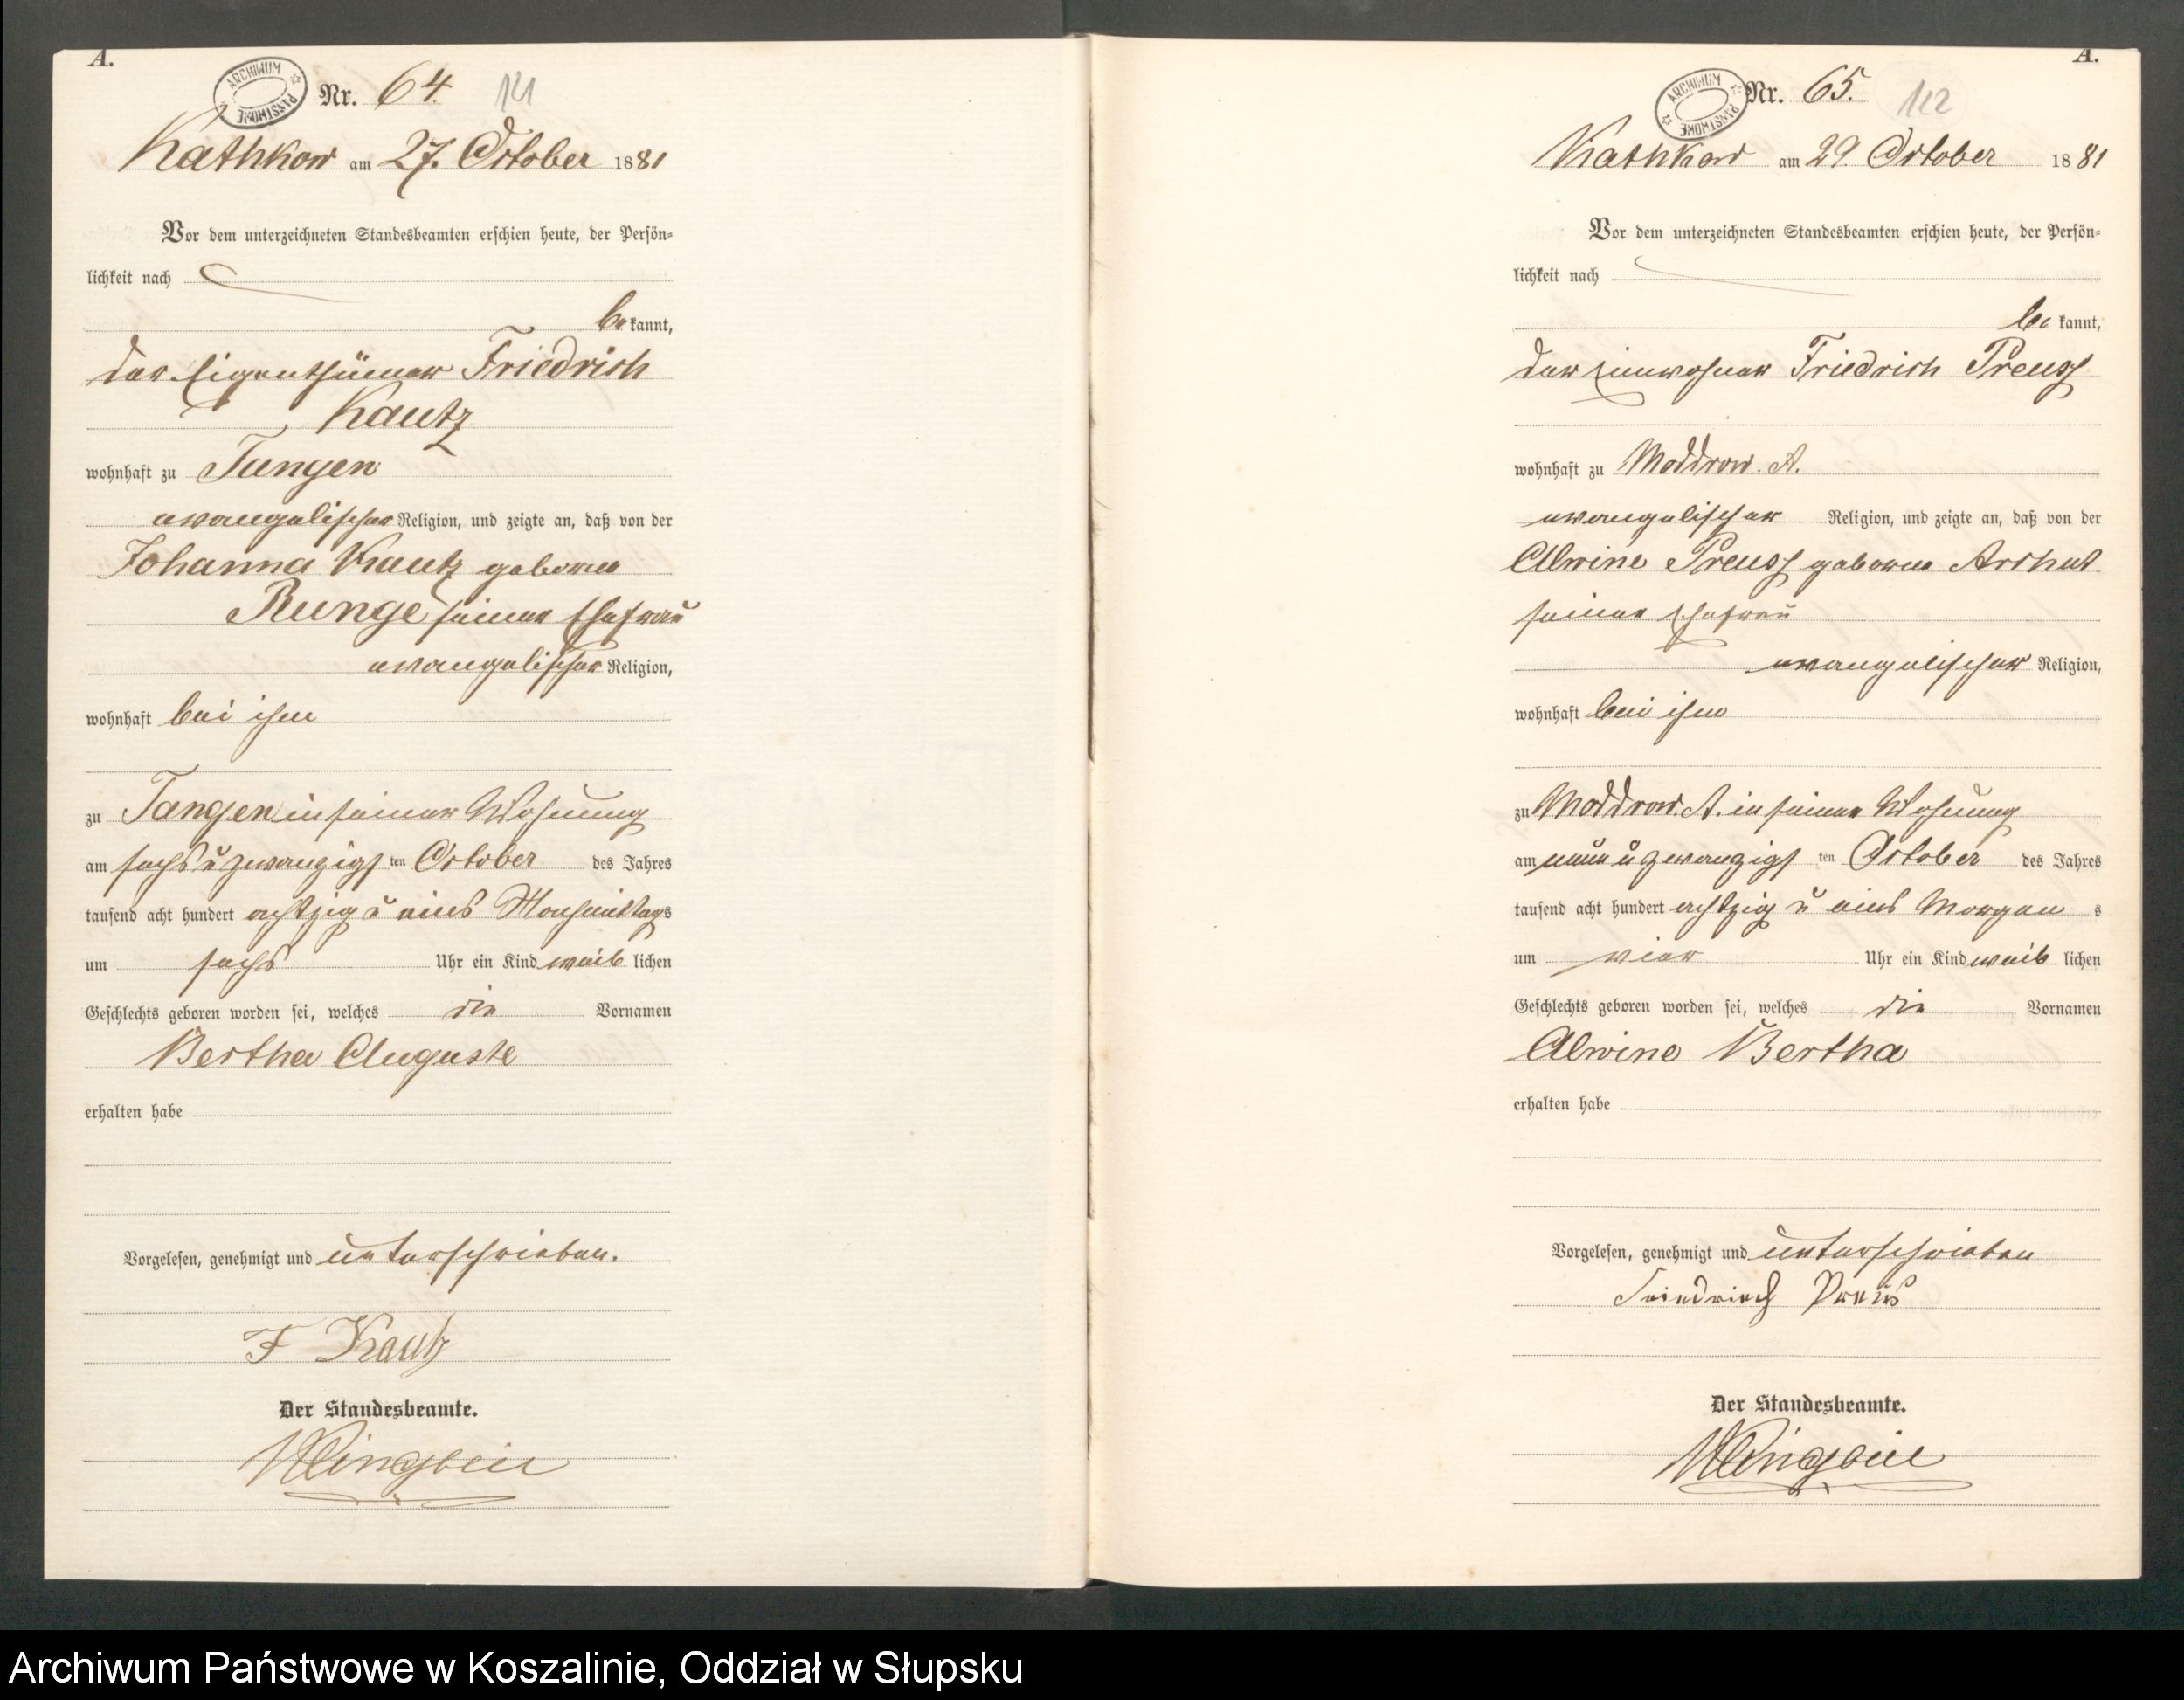 A.
ARCHIWUM PAŃSTWOWE
Nr. 64. 121
Kathkow am 27. October 1881
Vor dem unterzeichneten Standesbeamten erschien heute, der Persön-
lichkeit nach
bekannt,
der Eigenthümer Friedrich
Kautz
wohnhaft zu Tangen
evangelischer Religion, und zeigte an, daß von der
Johanna Kautz geborne
Runge seiner Ehefrau
evangelischer Religion,
wohnhaft bei ihm
zu Tangen in seiner Wohnung
am sechs u zwanzigsten October des Jahres
tausend acht hundert achtzig u eins Nachmittags
um sechs Uhr ein Kind weiblichen
Geschlechts geboren worden sei, welches die Vornamen
Bertha Auguste
erhalten habe
Vorgelesen, genehmigt und unterschrieben.
F Kautz
Der Standesbeamte.
A.
ARCHIWUM PAŃSTWOWE
Nr. 65. 122
Kathkow am 29. October 1881
Vor dem unterzeichneten Standesbeamten erschien heute, der Persön-
lichkeit nach
bekannt,
der Einwohner Friedrich Preuss
wohnhaft zu Moddrow. A.
evangelischer Religion, und zeigte an, daß von der
Alwine Preuss geborne Arshut
seiner Ehefrau
evangelischer Religion,
wohnhaft bei ihm
zu Moddrow. A. in seiner Wohnung
am neun u zwanzigsten October des Jahres
tausend acht hundert achtzig u eins Morgens
um vier Uhr ein Kind weiblichen
Geschlechts geboren worden sei, welches die Vornamen
Alwine Bertha
erhalten habe
Vorgelesen, genehmigt und unterschrieben
Friedrich Preus
Der Standesbeamte.
Archiwum Państwowe w Koszalinie, Oddział w Słupsku